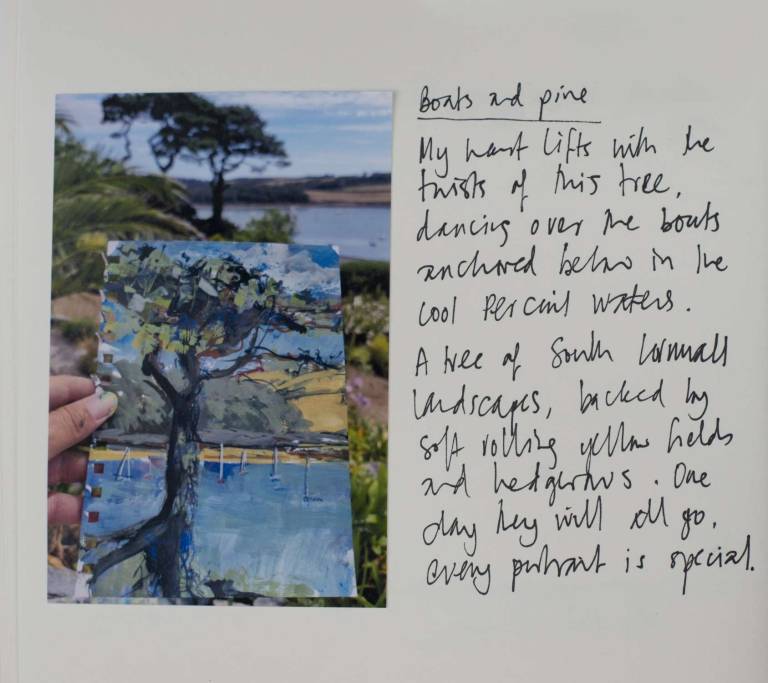 Boats and pine
My heart lifts with the
twists of this tree,
dancing over the boats
anchored below in the
cool Percuil waters.
A tree of South Cornwall
landscapes, backed by
soft rolling yellow fields
and hedgerows. One
day they will all go,
every portrait is special.